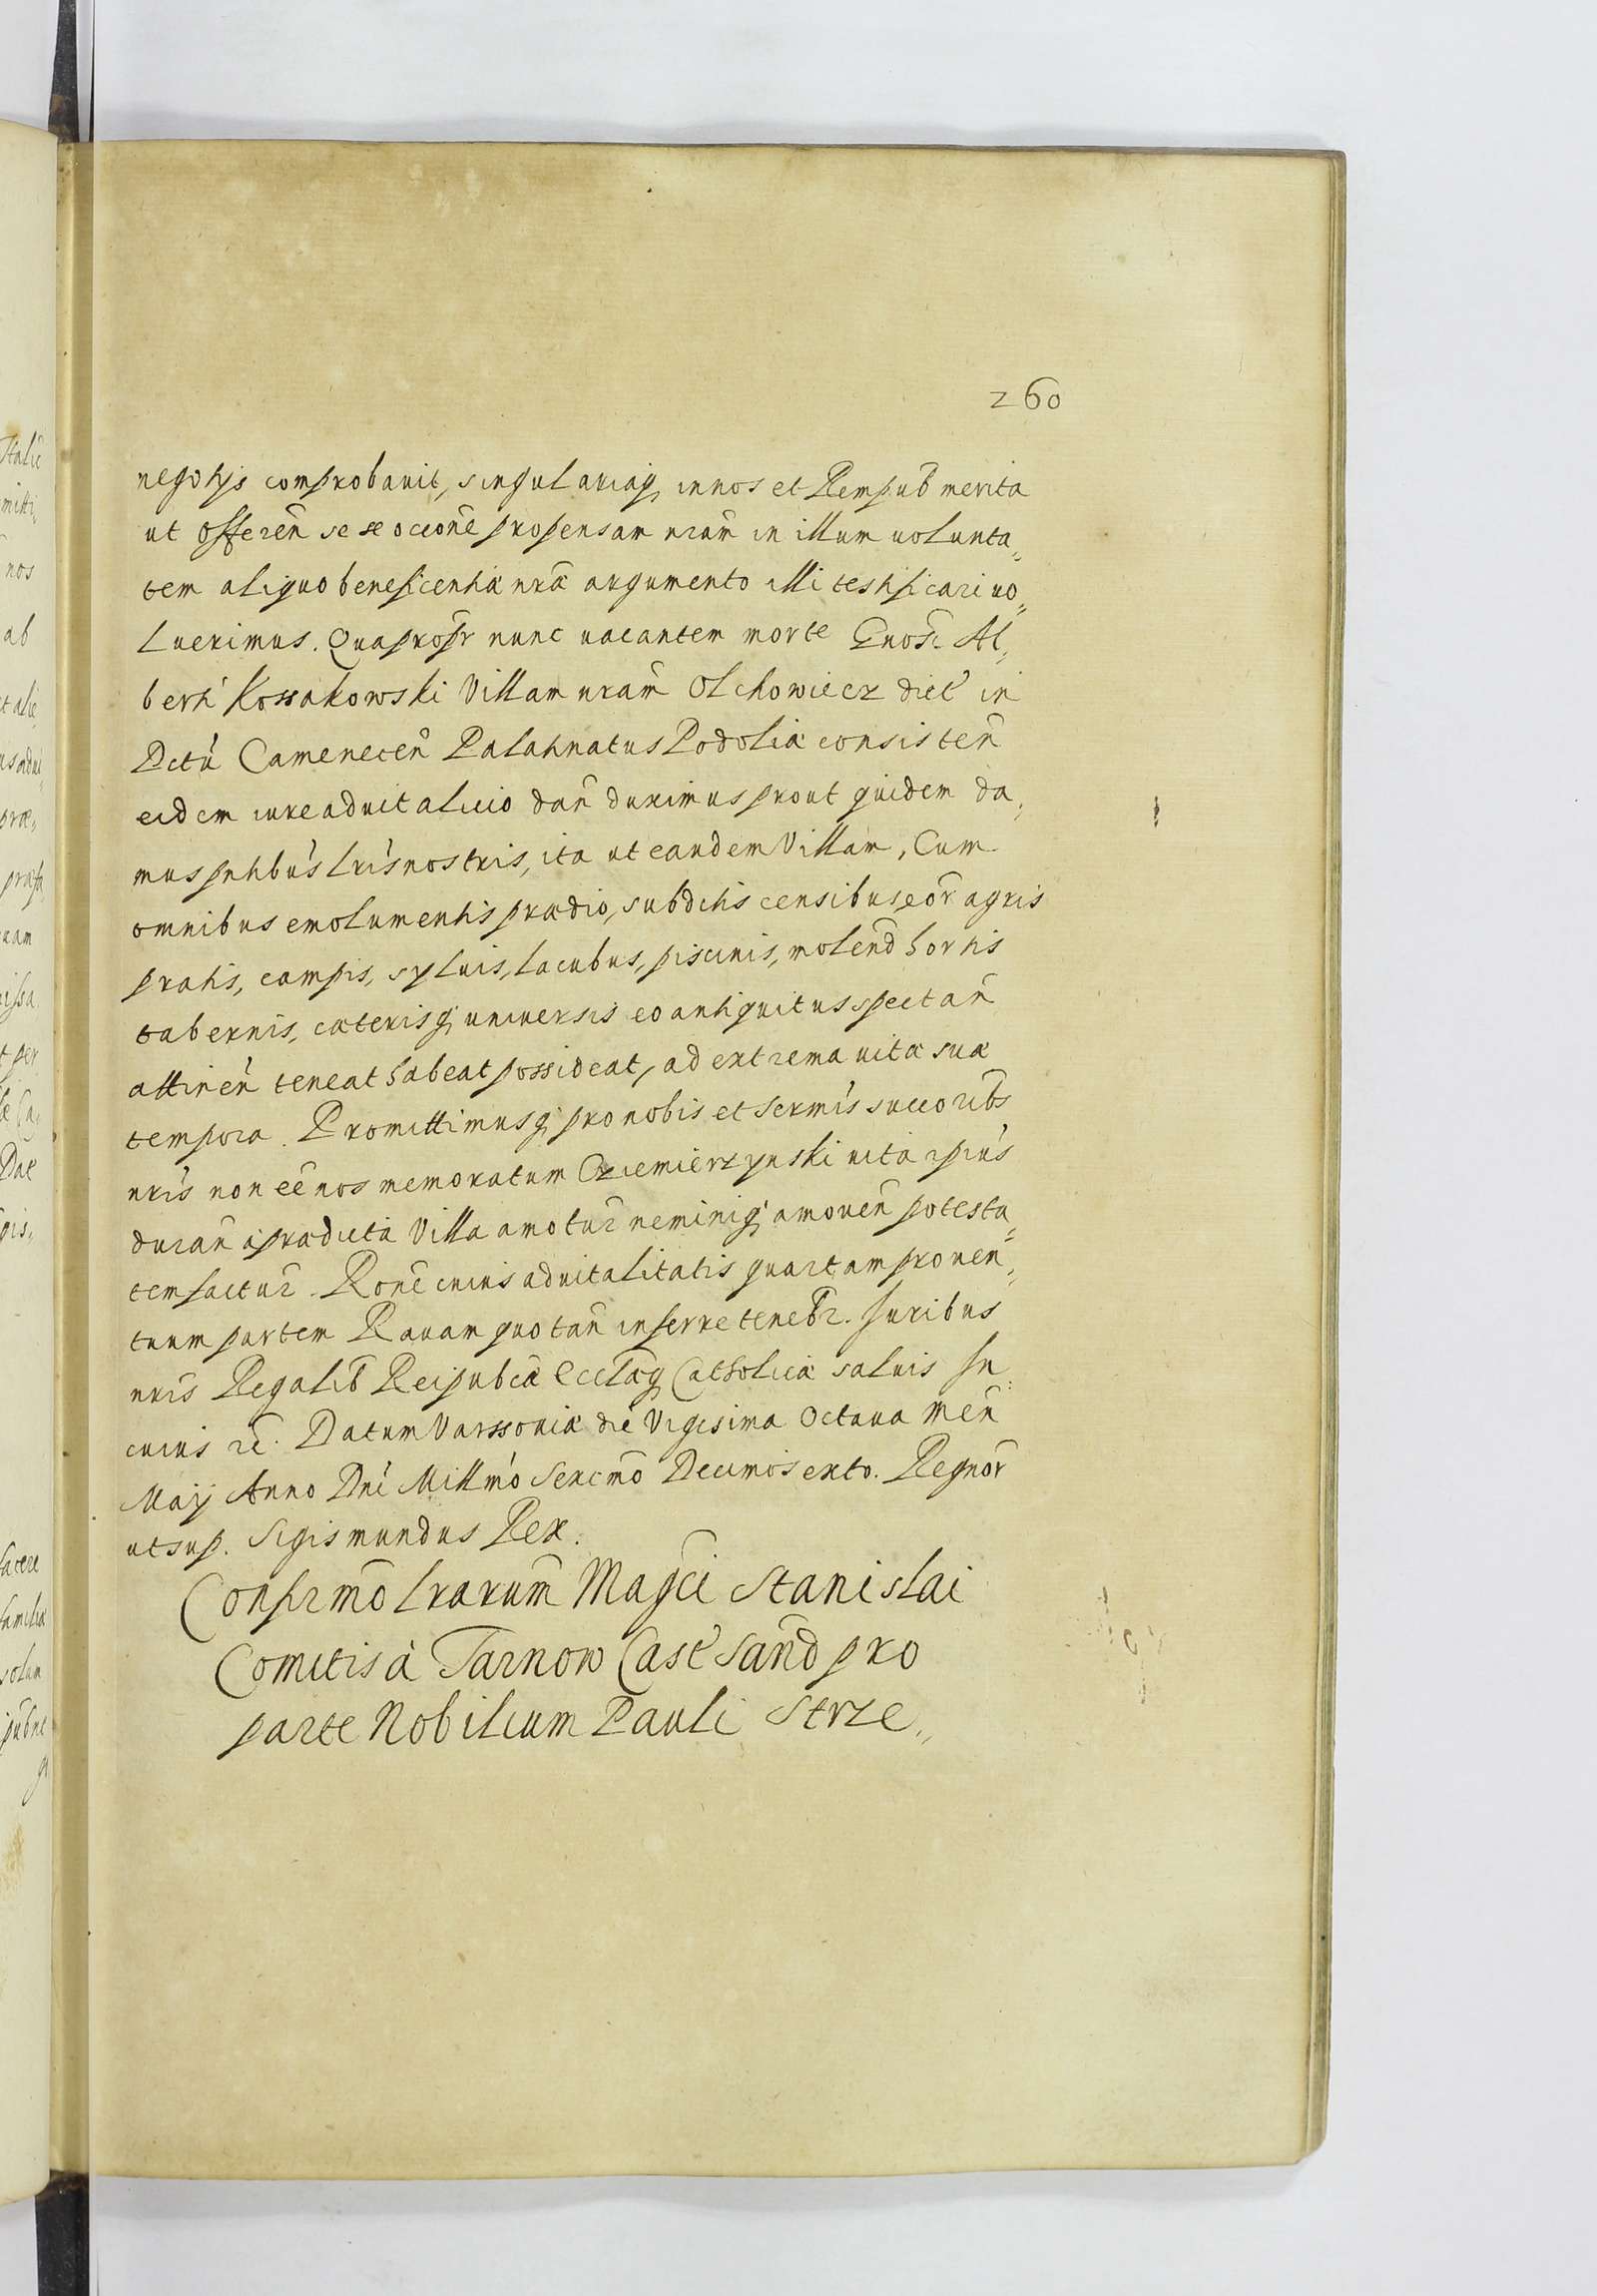 260
negotijs comprobauit, singulariaq, in nos et Rempub̃ merita
ut offereñ se se occionẽ propensam nr̃am in illum uolunta„
tem aliquo beneficentiæ nr̃æ argumento illi testificari uo„
luerimus. Quapropr̃ nunc uacantem morte Gnos̃. Al„
berti Kossakowski Villam nr̃am Olchowiecz dict̃ in
Dctũ Cameneceñ Palatinatus Podoliæ consisteñ
eidem iure aduitalicio dañ duximus prout quidem da„
mus pñtibus lr̃is nostris, ita ut eandem Villam, Cum
omnibus emolumentis prædio, subditis censibus, eor̃ agris
pratis, campis, syluis, lacubus, piscinis, moleñd hortis
tabernis, cæterisq; uniuersis eo antiquitus spectañ
attineñ teneat habeat possideat, ad extrema uitæ suæ
tempora. Promittimusq; pro nobis et Serm̃is succoribs̃
nr̃is non eẽ nos memoratum Cziemierzynski uita ipiũs
durañ a prædicta Villa amotur̃ neminiq; amoueñ potesta„
tem factur̃. Ronẽ cuius aduitalitatis quartam prouen„
tuum partem Rauam quotañ inferre tenebr̃. Iuribus
nr̃is Regalib̃ Reipubcæ Ecclæq Catholicæ saluis In„
cuius rẽ. Datum Varssouiæ die Vigesima Octaua Meñ
Maij Anno Dñi Millm̃o Sexcm̃o Decimosexto. Regnor̃
ut sup. Sigismundus Rex.
Confirm̃o lr̃arum Magc̃i Stanislai
Comitis à Tarnow Cast̃ Sañd pro
parte Nobilium Pauli Strze„